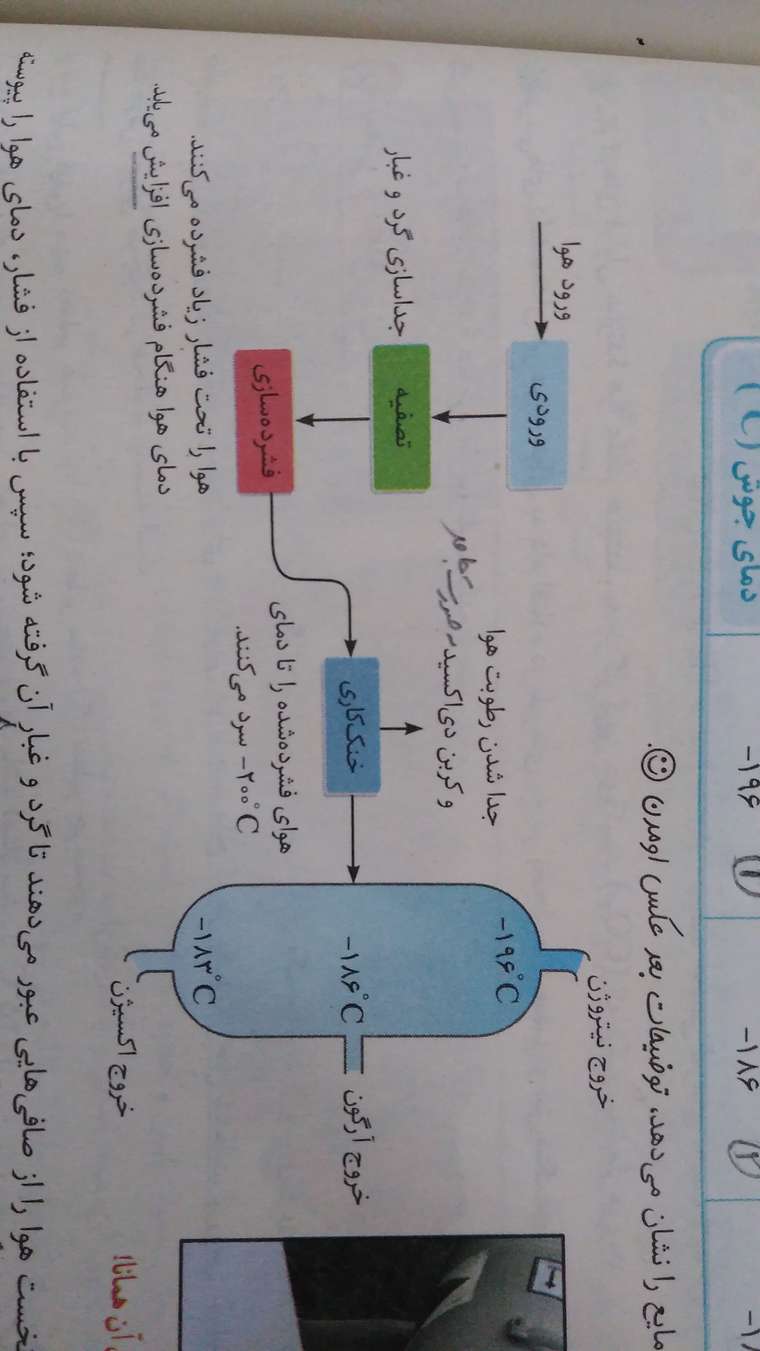 دمای جوش (°C)
-۱۹۶ ①
-۱۸۶ ②
مایع را نشان می‌دهد، توضیحات بعد عکس اومدن ☺.
ورود هوا
ورودی
جداسازی گرد و غبار
تصفیه
فشرده‌سازی
هوا را تحت فشار زیاد فشرده می‌کنند.
دمای هوا هنگام فشرده‌سازی افزایش می‌یابد.
جدا شدن رطوبت هوا
و کربن دی‌اکسید به صورت جامد
خنک‌کاری
هوای فشرده‌شده را تا دمای
-۲۰۰°C سرد می‌کنند.
خروج نیتروژن
-۱۹۶°C
-۱۸۶°C
خروج آرگون
-۱۸۳°C
خروج اکسیژن
آن همانا!
نخست هوا را از صافی‌هایی عبور می‌دهند تا گرد و غبار آن گرفته شود؛ سپس با استفاده از فشار، دمای هوا را پیوسته